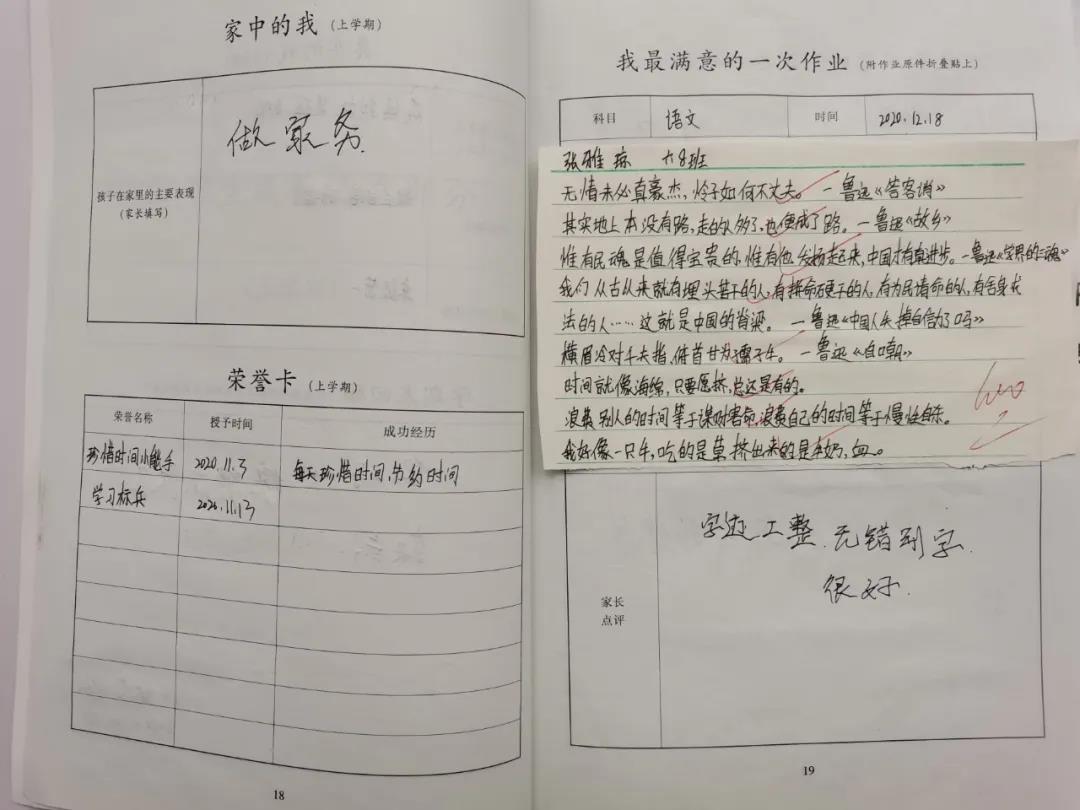 家中的我（上学期）
孩子在家里的主要表现
（家长填写）
做家务
荣誉卡（上学期）
荣誉名称 授予时间 成功经历
珍惜时间小能手 2020.11.3 每天珍惜时间,节约时间
学习标兵 2020.11.13
18
我最满意的一次作业（附作业原件折叠贴上）
科目 语文 时间 2020.12.18
张雅琼 六8班
无情未必真豪杰，怜子如何不丈夫。—鲁迅《答客诮》
其实地上本没有路,走的人多了,也便成了路。—鲁迅《故乡》
惟有民魂是值得宝贵的,惟有他发扬起来,中国才有真进步。—鲁迅《学界的三魂》
我们从古以来就有埋头苦干的人,有拼命硬干的人,有为民请命的人,有舍身求
法的人……这就是中国的脊梁。—鲁迅《中国人失掉自信力了吗》
横眉冷对千夫指,俯首甘为孺子牛。—鲁迅《自嘲》
时间就像海绵,只要愿挤,总还是有的。
浪费别人的时间等于谋财害命,浪费自己的时间等于慢性自杀。
我好像一只牛,吃的是草,挤出来的是牛奶,血。
100
家长
点评
字迹工整.无错别字.
很好.
19